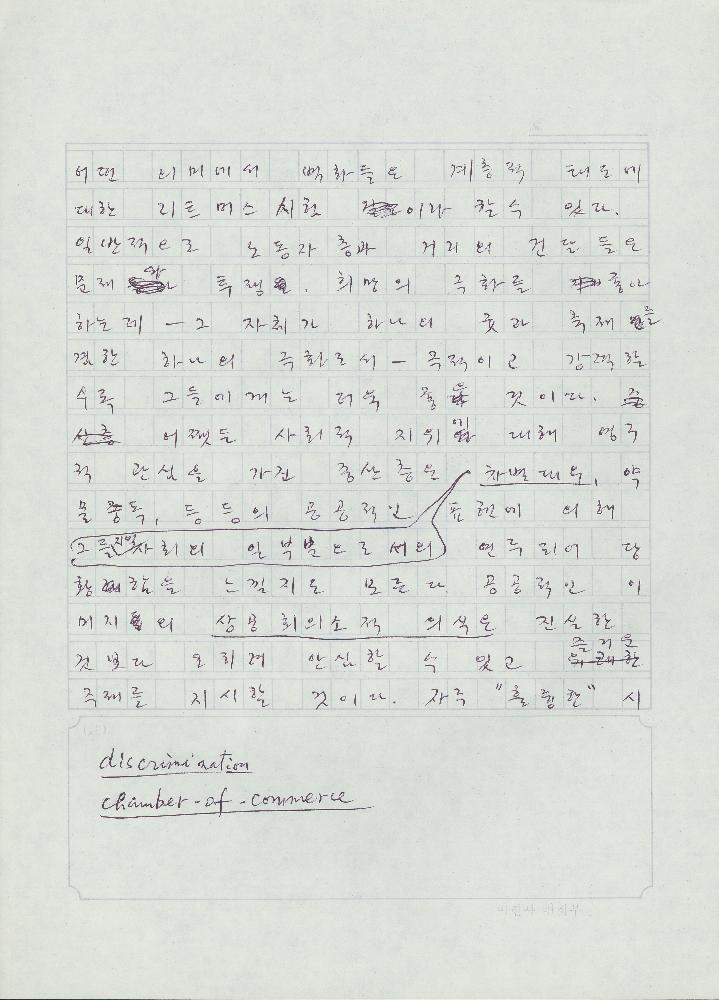 어떤 의미에서 벽화들은 계층적 태도에
대한 리트머스 시험 이라 할 수 있다.
일반적으로 노동자 층과 거리의 건달들은
문제와 투쟁, 희망의 극화를 좋아
하는데 — 그 자체가 하나의 춤과 축제를
겸한 하나의 극화로서 — 극적이고 감격할
수록 그들에게는 더욱 좋을 것이다.
어쨌든 사회적 지위에 대해 영구
적 관심을 가진 중산층은 차별대우, 약
물중독, 등등의 공공적인 표현에 의해
그들 지역사회의 일부분으로서의 연루되어 당
황함을 느낄지도 모른다 공공적인 이
미지의 상공회의소적 의식은 진실한
것보다 오히려 안심할 수 있고 즐거운
주제를 지시할 것이다. 자주 "훌륭한" 시
discrimination
chamber-of-commerce